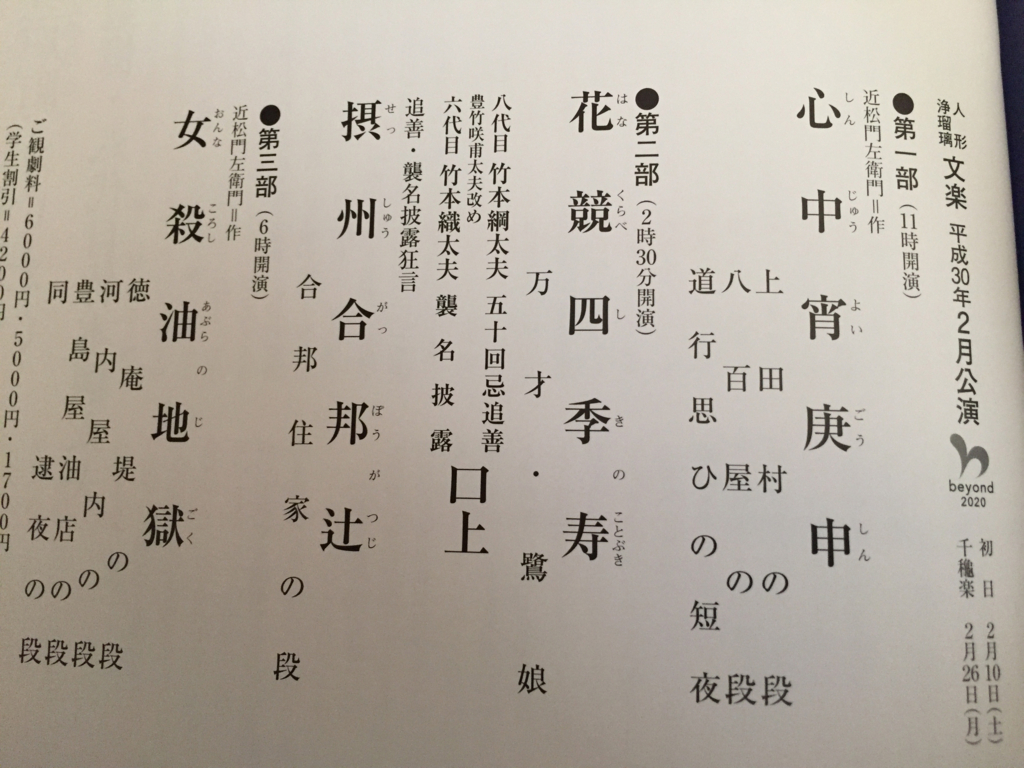 人形浄瑠璃 文楽 平成30年2月公演
beyond
2020
初日 2月10日(土)
千穐楽 2月26日(月)
●第一部(11時開演)
近松門左衛門=作
心中宵庚申
しんじゅうよいごうしん
上田村の段
八百屋の段
道行思ひの短夜
●第二部(2時30分開演)
花競四季寿
はなくらべしきのことぶき
万才・鷺娘
八代目 竹本綱太夫 五十回忌追善
豊竹咲甫太夫改め
六代目 竹本織太夫 襲名披露
口上
追善・襲名披露狂言
摂州合邦辻
せっしゅうがっぽうがつじ
合邦住家の段
●第三部(6時開演)
近松門左衛門=作
女殺油地獄
おんなころしあぶらのじごく
徳庵堤の段
河内屋内の段
豊島屋油店の段
同 逮夜の段
ご観劇料=6000円・5000円・1700円
(学生割引=4200円